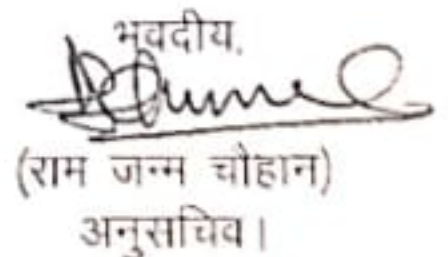 भवदीय,
(राम जन्म चौहान)
अनुसचिव।